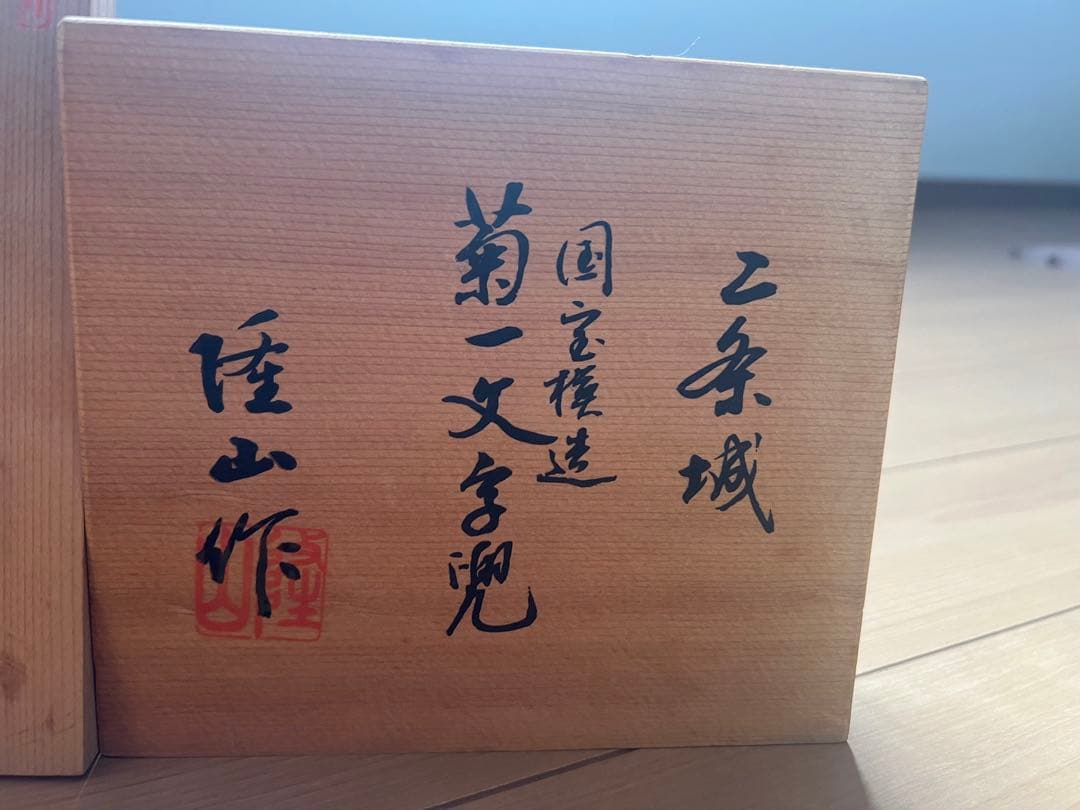 二条城
国宝模造
菊一文字兜
隆山作
隆山